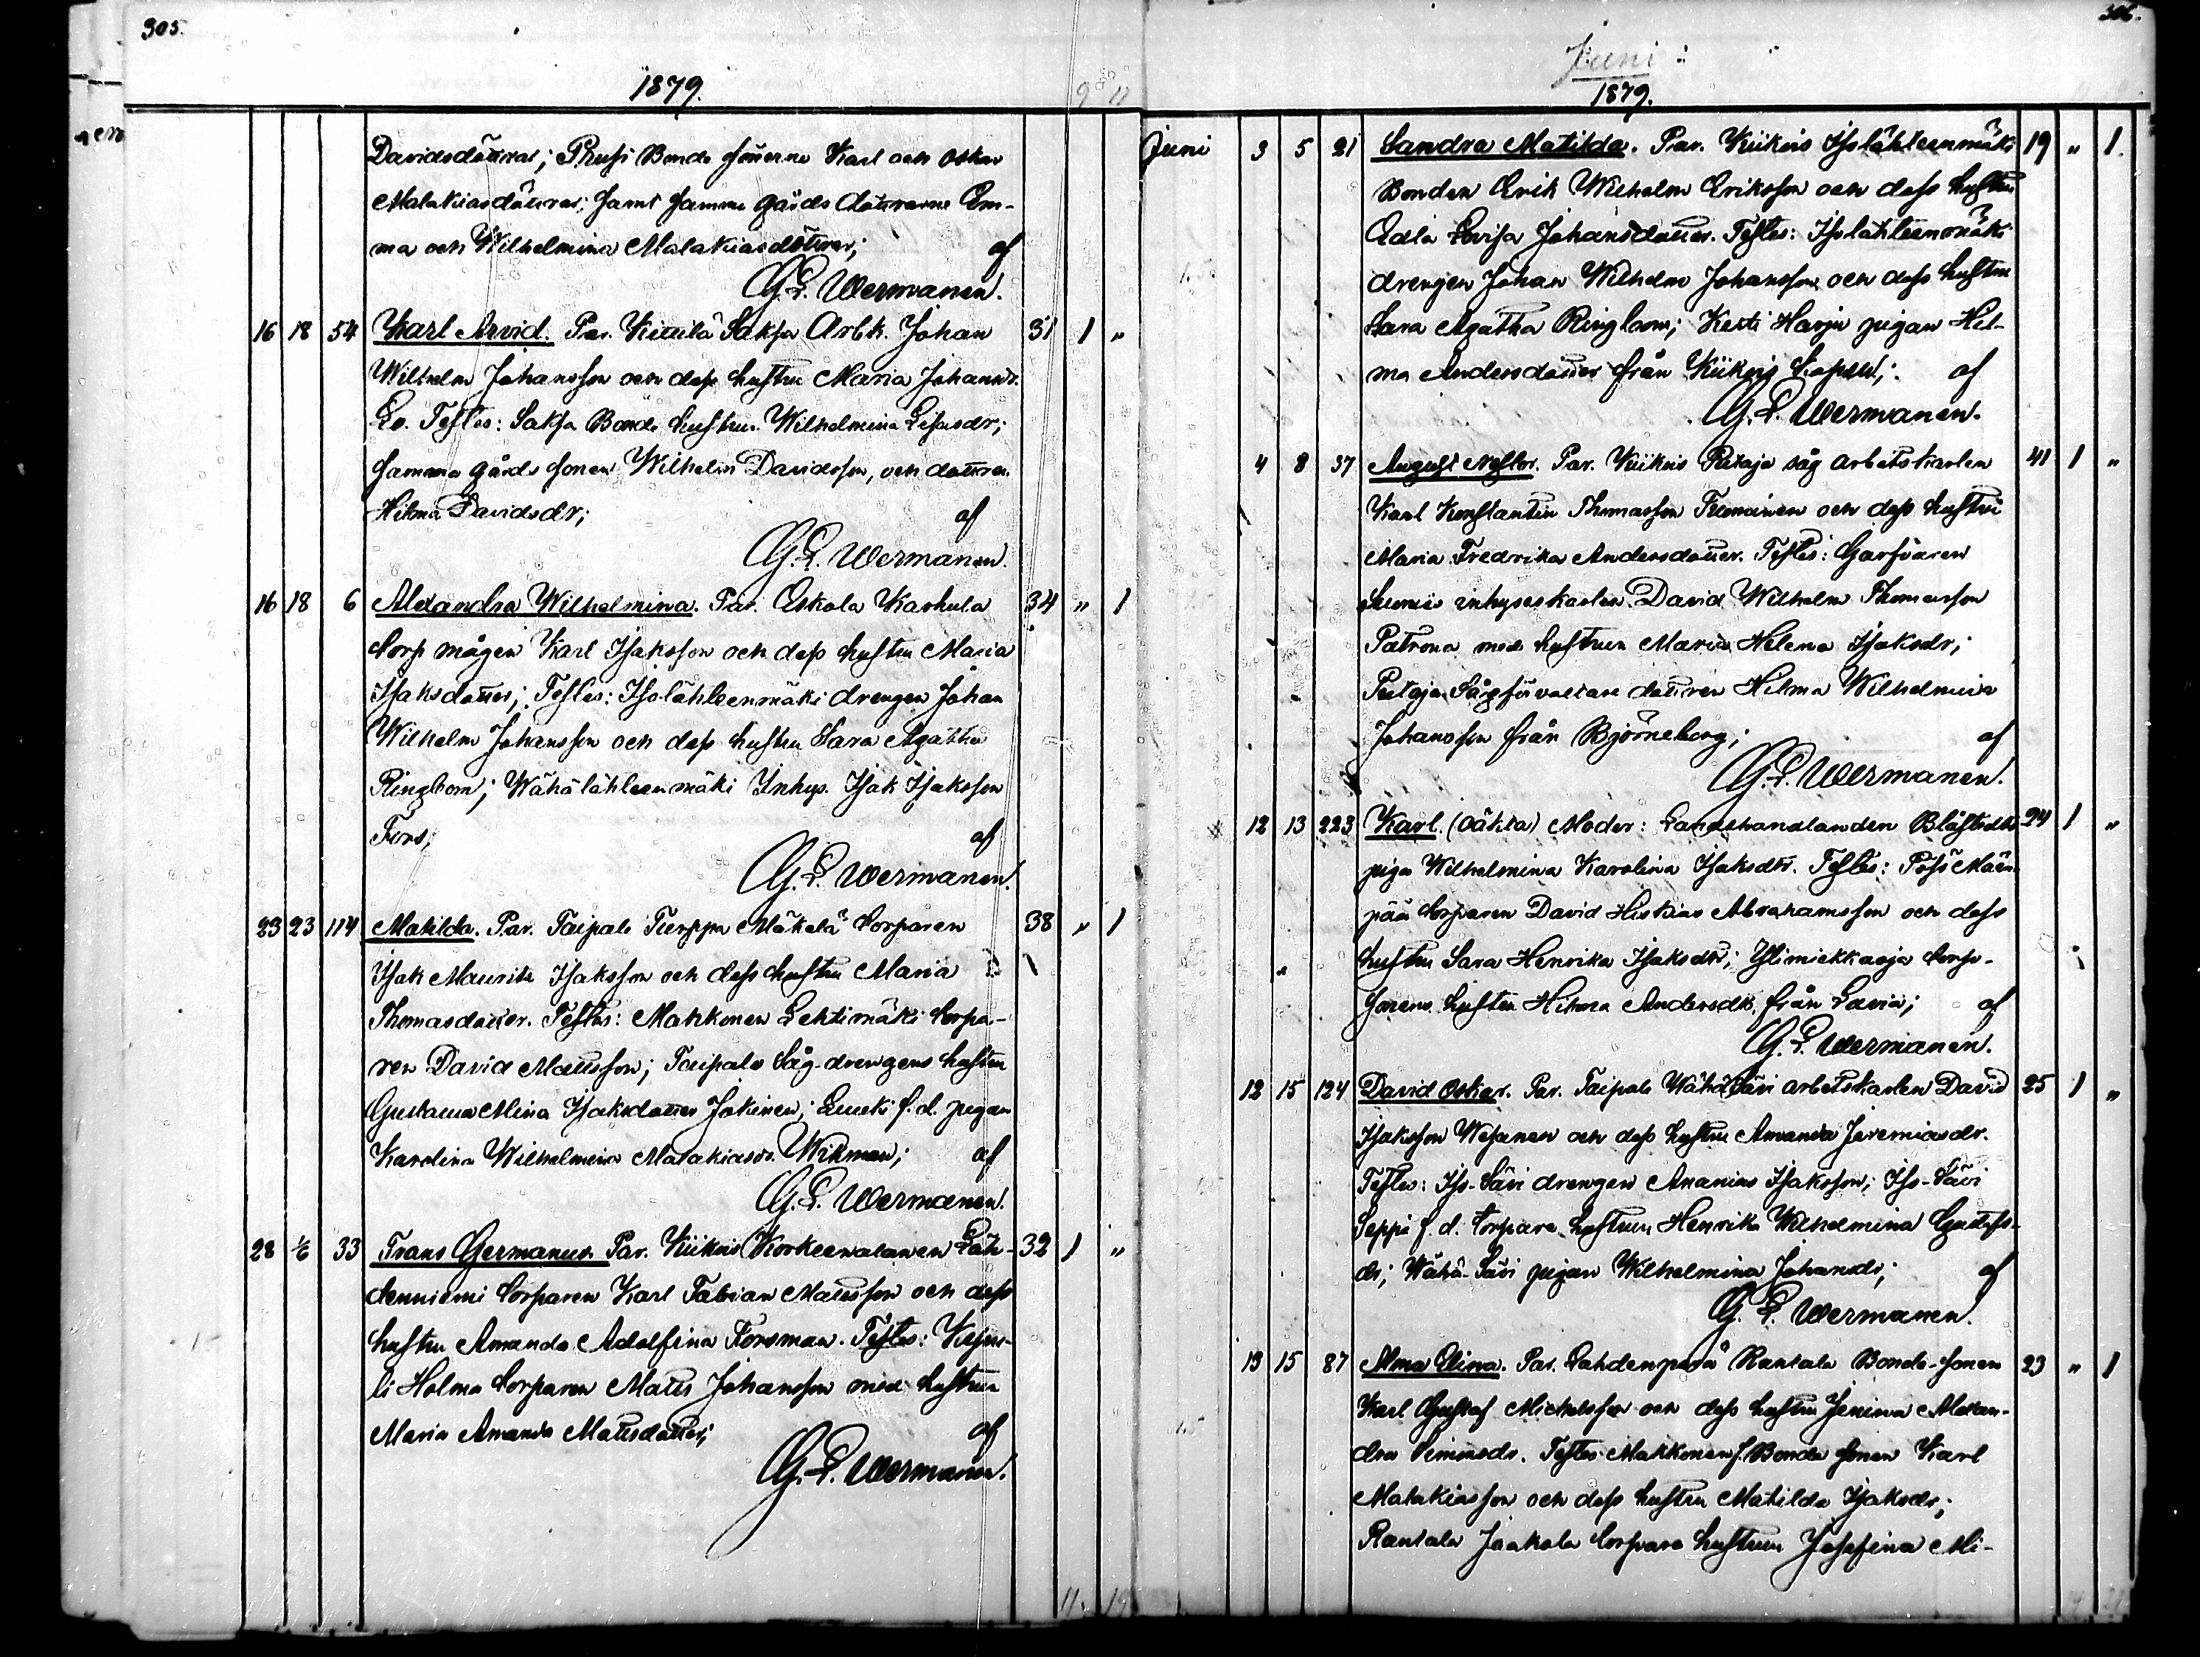 305.
1879.
Davidsdöttrar; Prusi Bonde sönerne Karl och Oskar
Malakiasdöttrar; samt samma gårds döttrarne Em-
ma och Wilhelmina Malakiasdöttrar; af
G. L. Wermanen.
16 18 54 Karl Arvid. Par. Kiikilä Saksa Arbk. Johan 31 1 "
Wilhelm Johansson och dess hustru Maria Johansdr.
Lo. Testes: Saksa Bonde hustrun Wilhelmina Lisasdr;
samma gårds sonen Wilhelm Davidsson, och dottren
Hilma Davidsdr; af
G. L. Wermanen.
16 18 6 Alexandra Wilhelmina. Par. Eskola Karhula 34 " 1
torp mågen Karl Isaksson och dess hustru Maria
Isaksdotter; Testes: Isolähteenmäki drengen Johan
Wilhelm Johansson och dess hustru Sara Agatha
Ringbom; Wähälähteenmäki Inhys. Isak Isaksson
Fors; af
G. L. Wermanen.
23 23 114 Matilda. Par. Taipale Tuerppa Mäkelä torparen 38 " 1
Isak Maurits Isaksson och dess hustru Maria
Thomasdotter. Testes: Makkonen Lehtimäki torpa-
ren David Mattsson; Taipale Såg-drengens hustru
Gustava Mina Isaksdotter Jokinen; f.d. pigan
Karolina Wilhelmina Malakiasdr. Wikman; af
G. L. Wermanen.
28 1/6 33 Frans Germanus. Par. Kiikois Korkeenalanen Läh- 32 1 "
denniemi torparen Karl Fabian Mattsson och dess
hustru Amanda Adolfina Forsman. Testes:
Holma torparen Matts Johansson med hustrun
Maria Amanda Mattsdotter; af
G. L. Wermanen.
306.
Juni
1879.
Juni 3 5 21 Sandra Matilda. Par. Kiikois Isolähteenmäki 19 " 1.
Bonden Erik Wilhelm Eriksson och dess hustru
Edla Lovisa Johansdotter. Testes: Isolähteenmäki
drengen Johan Wilhelm Johansson och dess hustru
Sara Agatha Ringbom; Kesti Harju pigan Hil-
ma Andersdotter från Kiikois Capell; af
G. L. Wermanen.
4 8 37 August Nestor. Par. Kiikois Putaja såg arbetskarlen 41 1 "
Karl Konstantin Thomasson Tuominen och dess hustru
Maria Fredrika Andersdotter. Testes: Garfvaren
inhyseskarlen David Wilhelm Thomasson
Patrona med hustrun Maria Helena Isaksdr;
Putaja Sågförvaltare dottren Hilma Wilhelmina
Johansson från Björneborg; af
G. L. Wermanen.
12 13 223 Karl. (oäkta) Moder: Landthandlanden Blåfields 24 1 "
piga Wilhelmina Karolina Isaksdtr. Testes: Pösö Mäen-
pää torparen David Hiskias Abrahamsson och dess
hustru Sara Henrika Isaksdtr; Ylimiekkaoja torp-
sonens hustru Hilma Andersdtr. från Lavia; af
G. L. Wermanen.
12 15 124 David Oskar. Par. Taipale Wähä Sävi arbetskarlen David 25 1 "
Isaksson Wesanen och dess hustru Amanda Jeremiasdr.
Testes: Iso-Sävi drengen Ananias Isaksson; Iso-Sävi
Seppä f.d. torpare hustrun Henrika Wilhelmina Gustafs-
dr; Wähä-Sävi pigan Wilhelmina Johansdr; af
G. L. Wermanen.
13 15 87 Alma Elina. Par. Lahdenperä Rantala Bonde-sonen 23 " 1
Karl Gustaf Michelsson och dess hustru Jenina Alexan-
dra Simonsdr. Testes Makkonen f. Bonde sonen Karl
Malakiasson och dess hustru Matilda Isaksdr;
Rantala Jaakola torpare hustrun Josefina Mi-